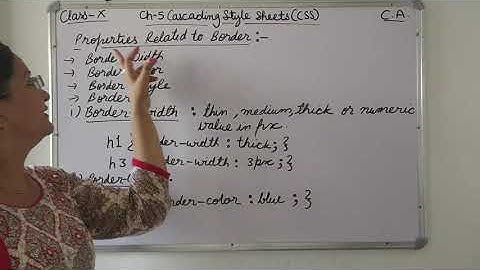 Class-X Ch-5 Cascading Style Sheets (CSS) C.A.
Properties Related to Border :-
→ Border Width
→ Border
→ Border
→ Border
i) Border-Width : thin, medium, thick or numeric
value in px.
h1 { -width : thick; }
h3 -width : 3px ; }
-color : blue ; }